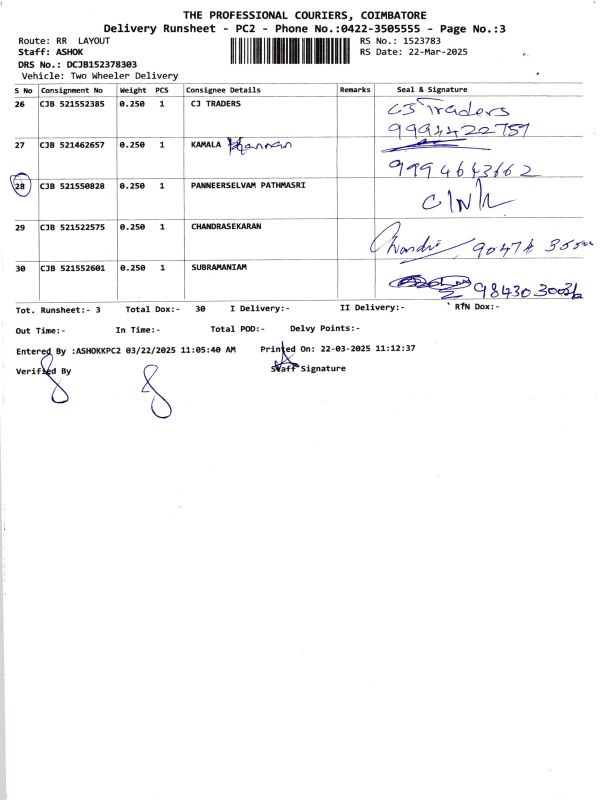 THE PROFESSIONAL COURIERS, COIMBATORE
Delivery Runsheet - PC2 - Phone No.:0422-3505555 - Page No.:3
Route: RR LAYOUT RS No.: 1523783
Staff: ASHOK RS Date: 22-Mar-2025
DRS No.: DCJB152378303
Vehicle: Two Wheeler Delivery
S No Consignment No Weight PCS Consignee Details Remarks Seal & Signature
26 CJB 521552385 0.250 1 CJ TRADERS CJ Traders
9994422757
27 CJB 521462657 0.250 1 KAMALA Kannan
9994643662
28 CJB 521550828 0.250 1 PANNEERSELVAM PATHMASRI
29 CJB 521522575 0.250 1 CHANDRASEKARAN
30 CJB 521552601 0.250 1 SUBRAMANIAM
Tot. Runsheet:- 3 Total Dox:- 30 I Delivery:- II Delivery:- RTN Dox:-
Out Time:- In Time:- Total POD:- Delvy Points:-
Entered By :ASHOKKPC2 03/22/2025 11:05:40 AM Printed On: 22-03-2025 11:12:37
Verified By Staff Signature